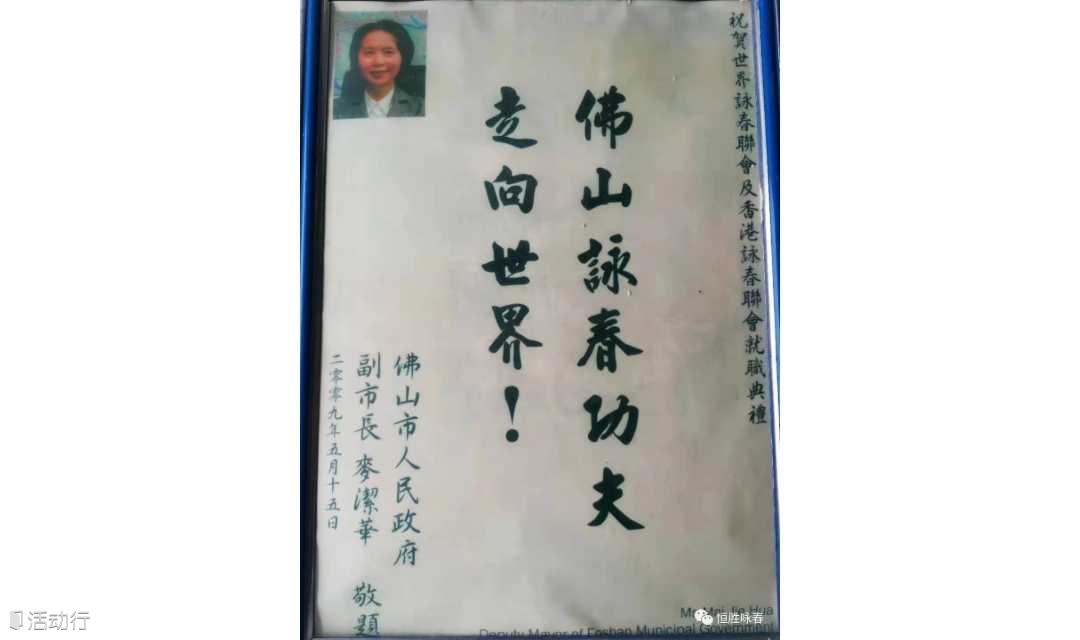 祝賀世界詠春聯會及香港詠春聯會就職典禮
佛山詠春功夫
走向世界！
佛山市人民政府
副市長 麥潔華 敬題
二零零九年五月十五日
Ms Mai Jie Hua
Deputy Mayor of Foshan Municipal Government
恒胜咏春
活动行